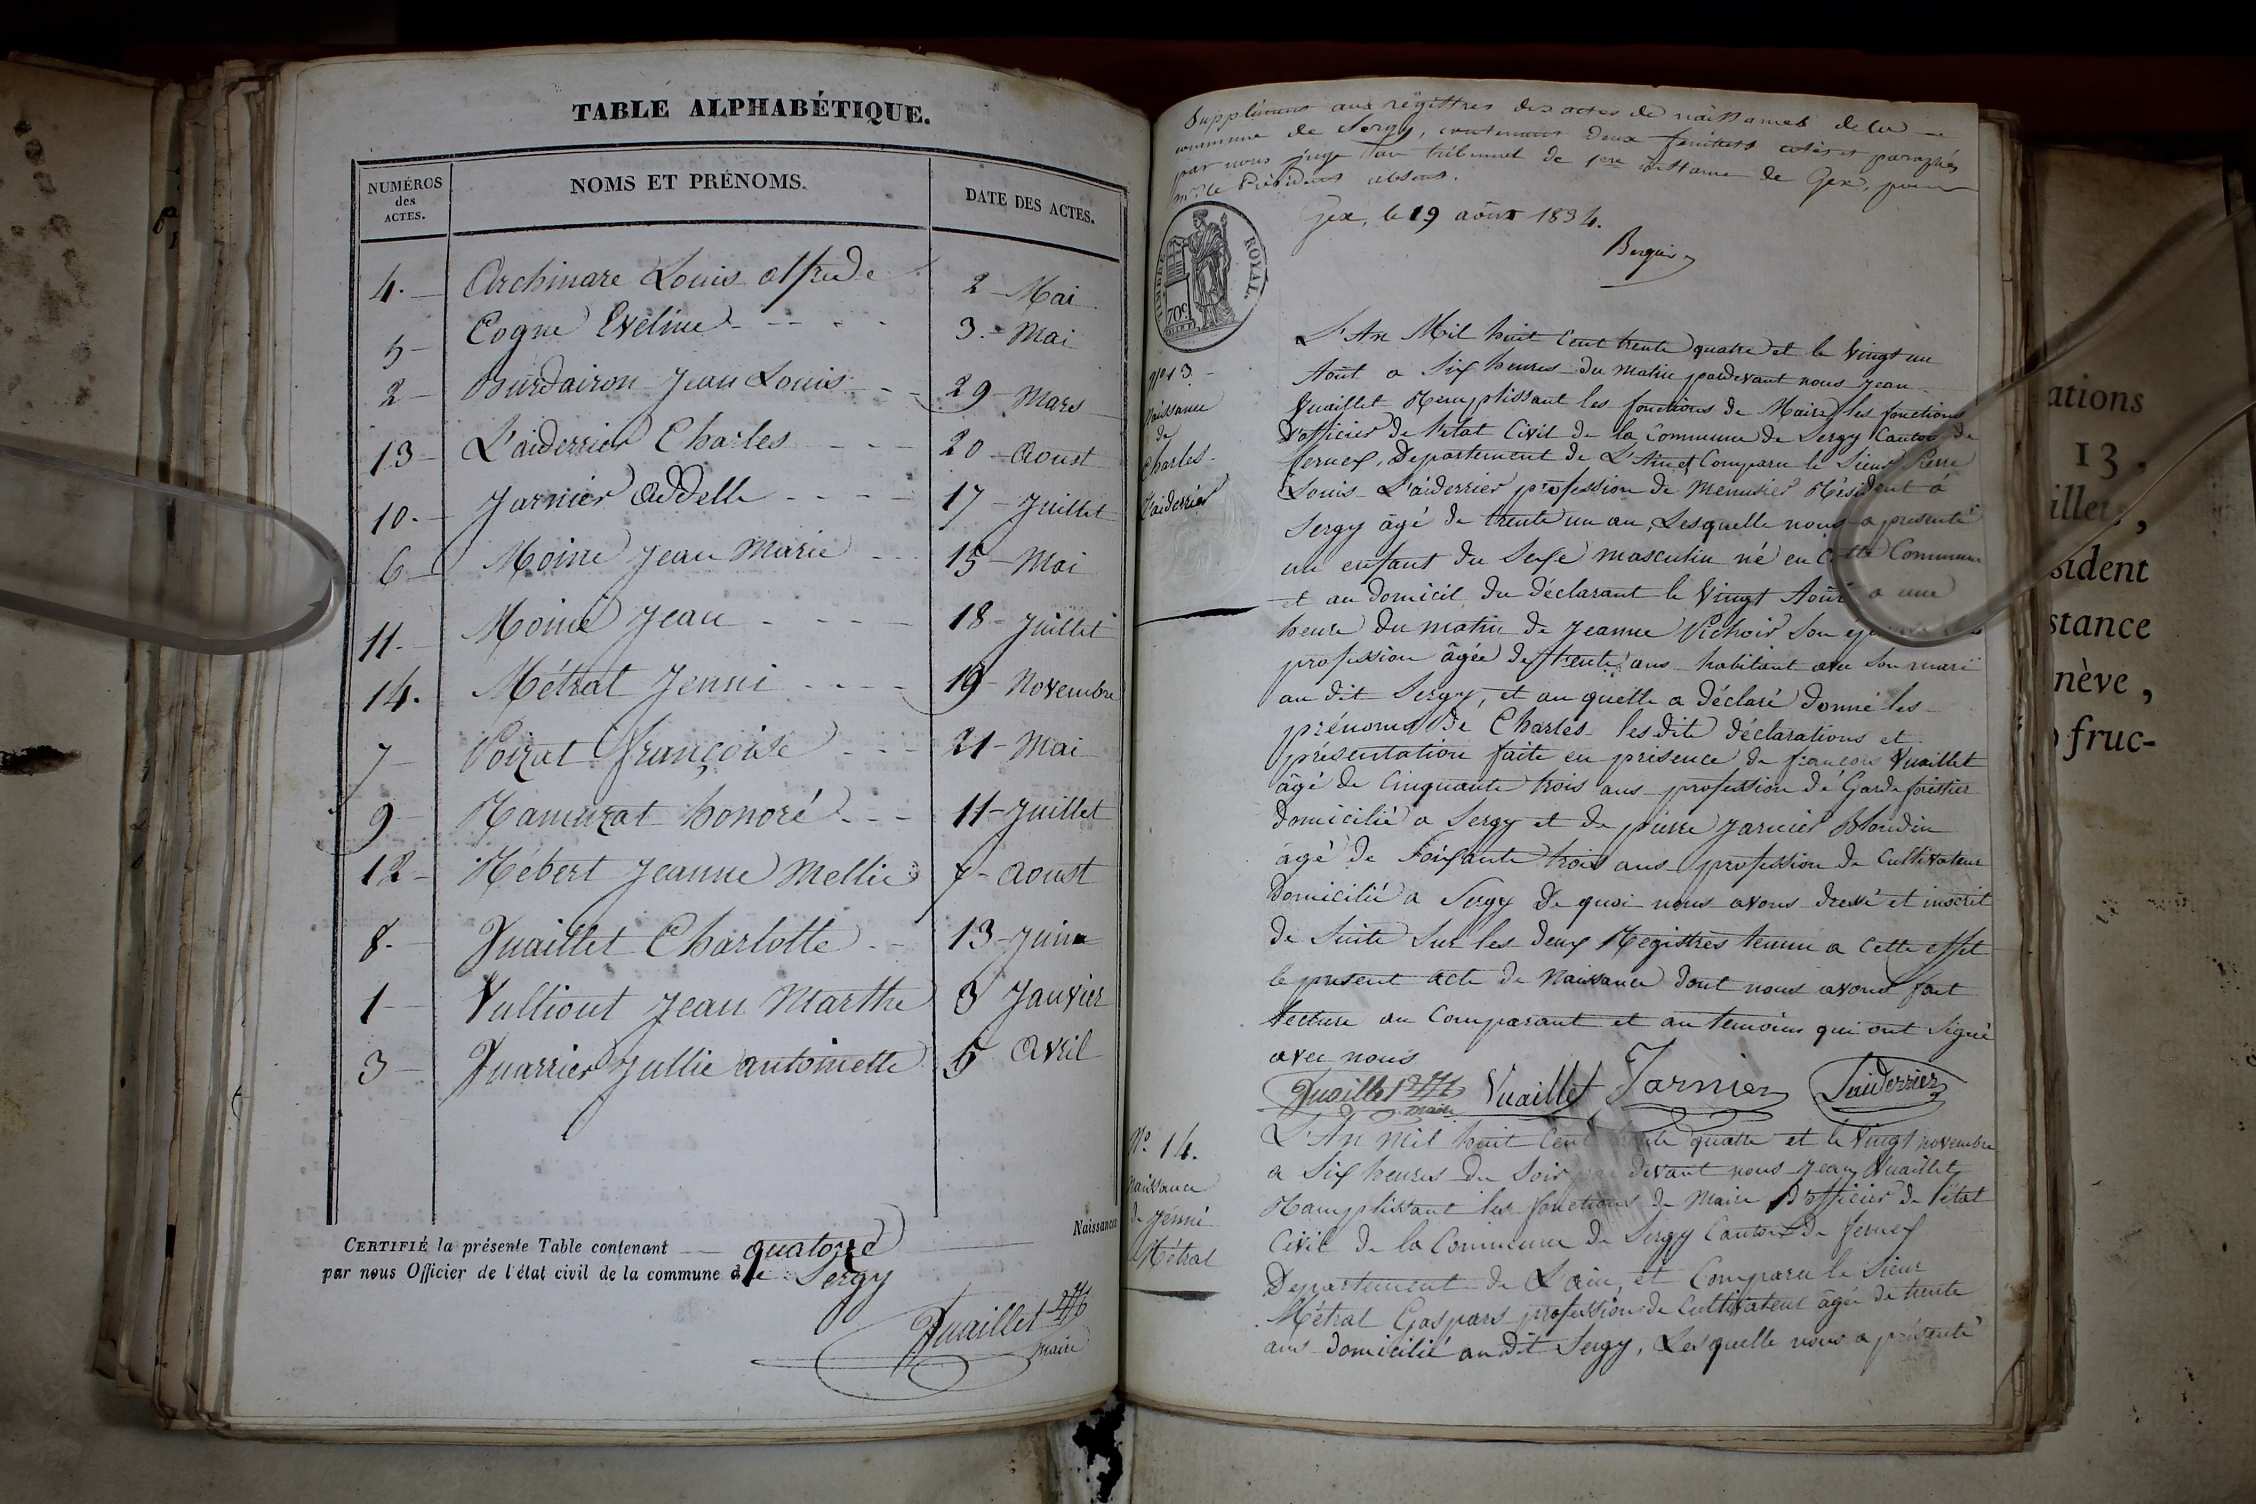 TABLE ALPHABÉTIQUE.
NUMÉROS des ACTES.
NOMS ET PRÉNOMS.
DATE DES ACTES.
4. Archinare Louis alfrede 2 Mai
5 Cogne Eveline 3. Mai
2 Burdairon Jean Louis 29 Mars
13 L'aiderrier Charles 20 Aoust
10. Jarnier Addelle 17 Juillet
6 Moine Jean Marie 15 Mai
11. Moine Jean 18 Juillet
14. Métral Jenni 19 Novembre
7 Poizat françoise 21 Mai
9 Ramurat honoré 11 Juillet
12 Hébert Jeanne Mellie 7 Aoust
8. Vuaillet Charlotte 13 Juin
1 Vulliout Jean Marthe 3 Janvier
3 Vuarrier Jullie antoinette 5 Avril
Naissances
CERTIFIÉ la présente Table contenant quatorze
par nous Officier de l'état civil de la commune de Sergy
Vuaillet
maire
Supplément aux régistres des actes de naissances de la
commune de Sergy, contenant deux feuillets cotés et paraphés
par nous juge au tribunal de 1ere instance de Gex, pour
mr. le Président absent.
Gex, le 19 août 1834.
TIMBRE ROYAL
70c
No 13
Naissance
de
Charles
L'aiderrier
L'An Mil huit Cent trente quatre et le Vingt un
Août a Six heures du matin pardevant nous Jean
Vuaillet Remplissant les fonctions de Maire les fonctions
d'officier de l'etat Civil de la Commune de Sergy Canton de
fernex, Departement de L'Ain et Comparu le Sieur Pierre
Louis L'aiderrier profession de Menusier Résident à
Sergy âgé de trente un an, Lesquelle nous a presenté
un enfant du Sexe masculin né en Cette Commune
et au domicil du déclarant le Vingt Août a une
heure du matin de Jeanne Pichoir Son épouse
profession âgée de trente ans habitant avec Son mari
au dit Sergy, et au quelle a déclaré donné les
prénoms de Charles les dite déclarations et
présentation faite en présence de françois Vuaillet
âgé de Cinquante trois ans profession de Garde forestier
domicilié a Sergy et de pierre Jarnier Blondin
âgé de Soixante trois ans profession de Cultivateur
domicilié a Sergy De quoi nous avons dressé et inscrit
de Suite Sur les deux Registres tenue a cette effet
le present acte de Naissance dont nous avons fait
Lecture au Comparant et au temoins qui ont Signé
avec nous
Vuaillet maire Vuaillet Jarnier Laiderrier
No. 14.
Naissance
de Jenni
Métral
L'An mil huit Cent trente quatre et le Vingt novembre
a Six heures du Soir par devant nous Jean Vuaillet
Ramplissant les fonctions de Maire d'officier de l'état
Civil de la Commune de Sergy Canton de fernex
Departement de L'ain, et Comparu le Sieur
Métral Gaspard profession de Cultivateur âgée de trente
ans domicilié au dit Sergy, Lesquelle nous a présenté
ations
13,
illet,
sident
stance
nève,
fruc-